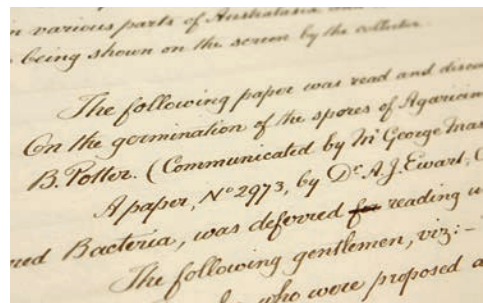 in various parts of Australasia
being shown on the screen by the collector.
The following paper was read and
On the germination of the spores of
B. Potter. (Communicated by Mr George
A paper, No 2973, by Dr. A. J. Ewart,
Bacteria, was deferred for reading
The following gentlemen, viz:-
who were proposed